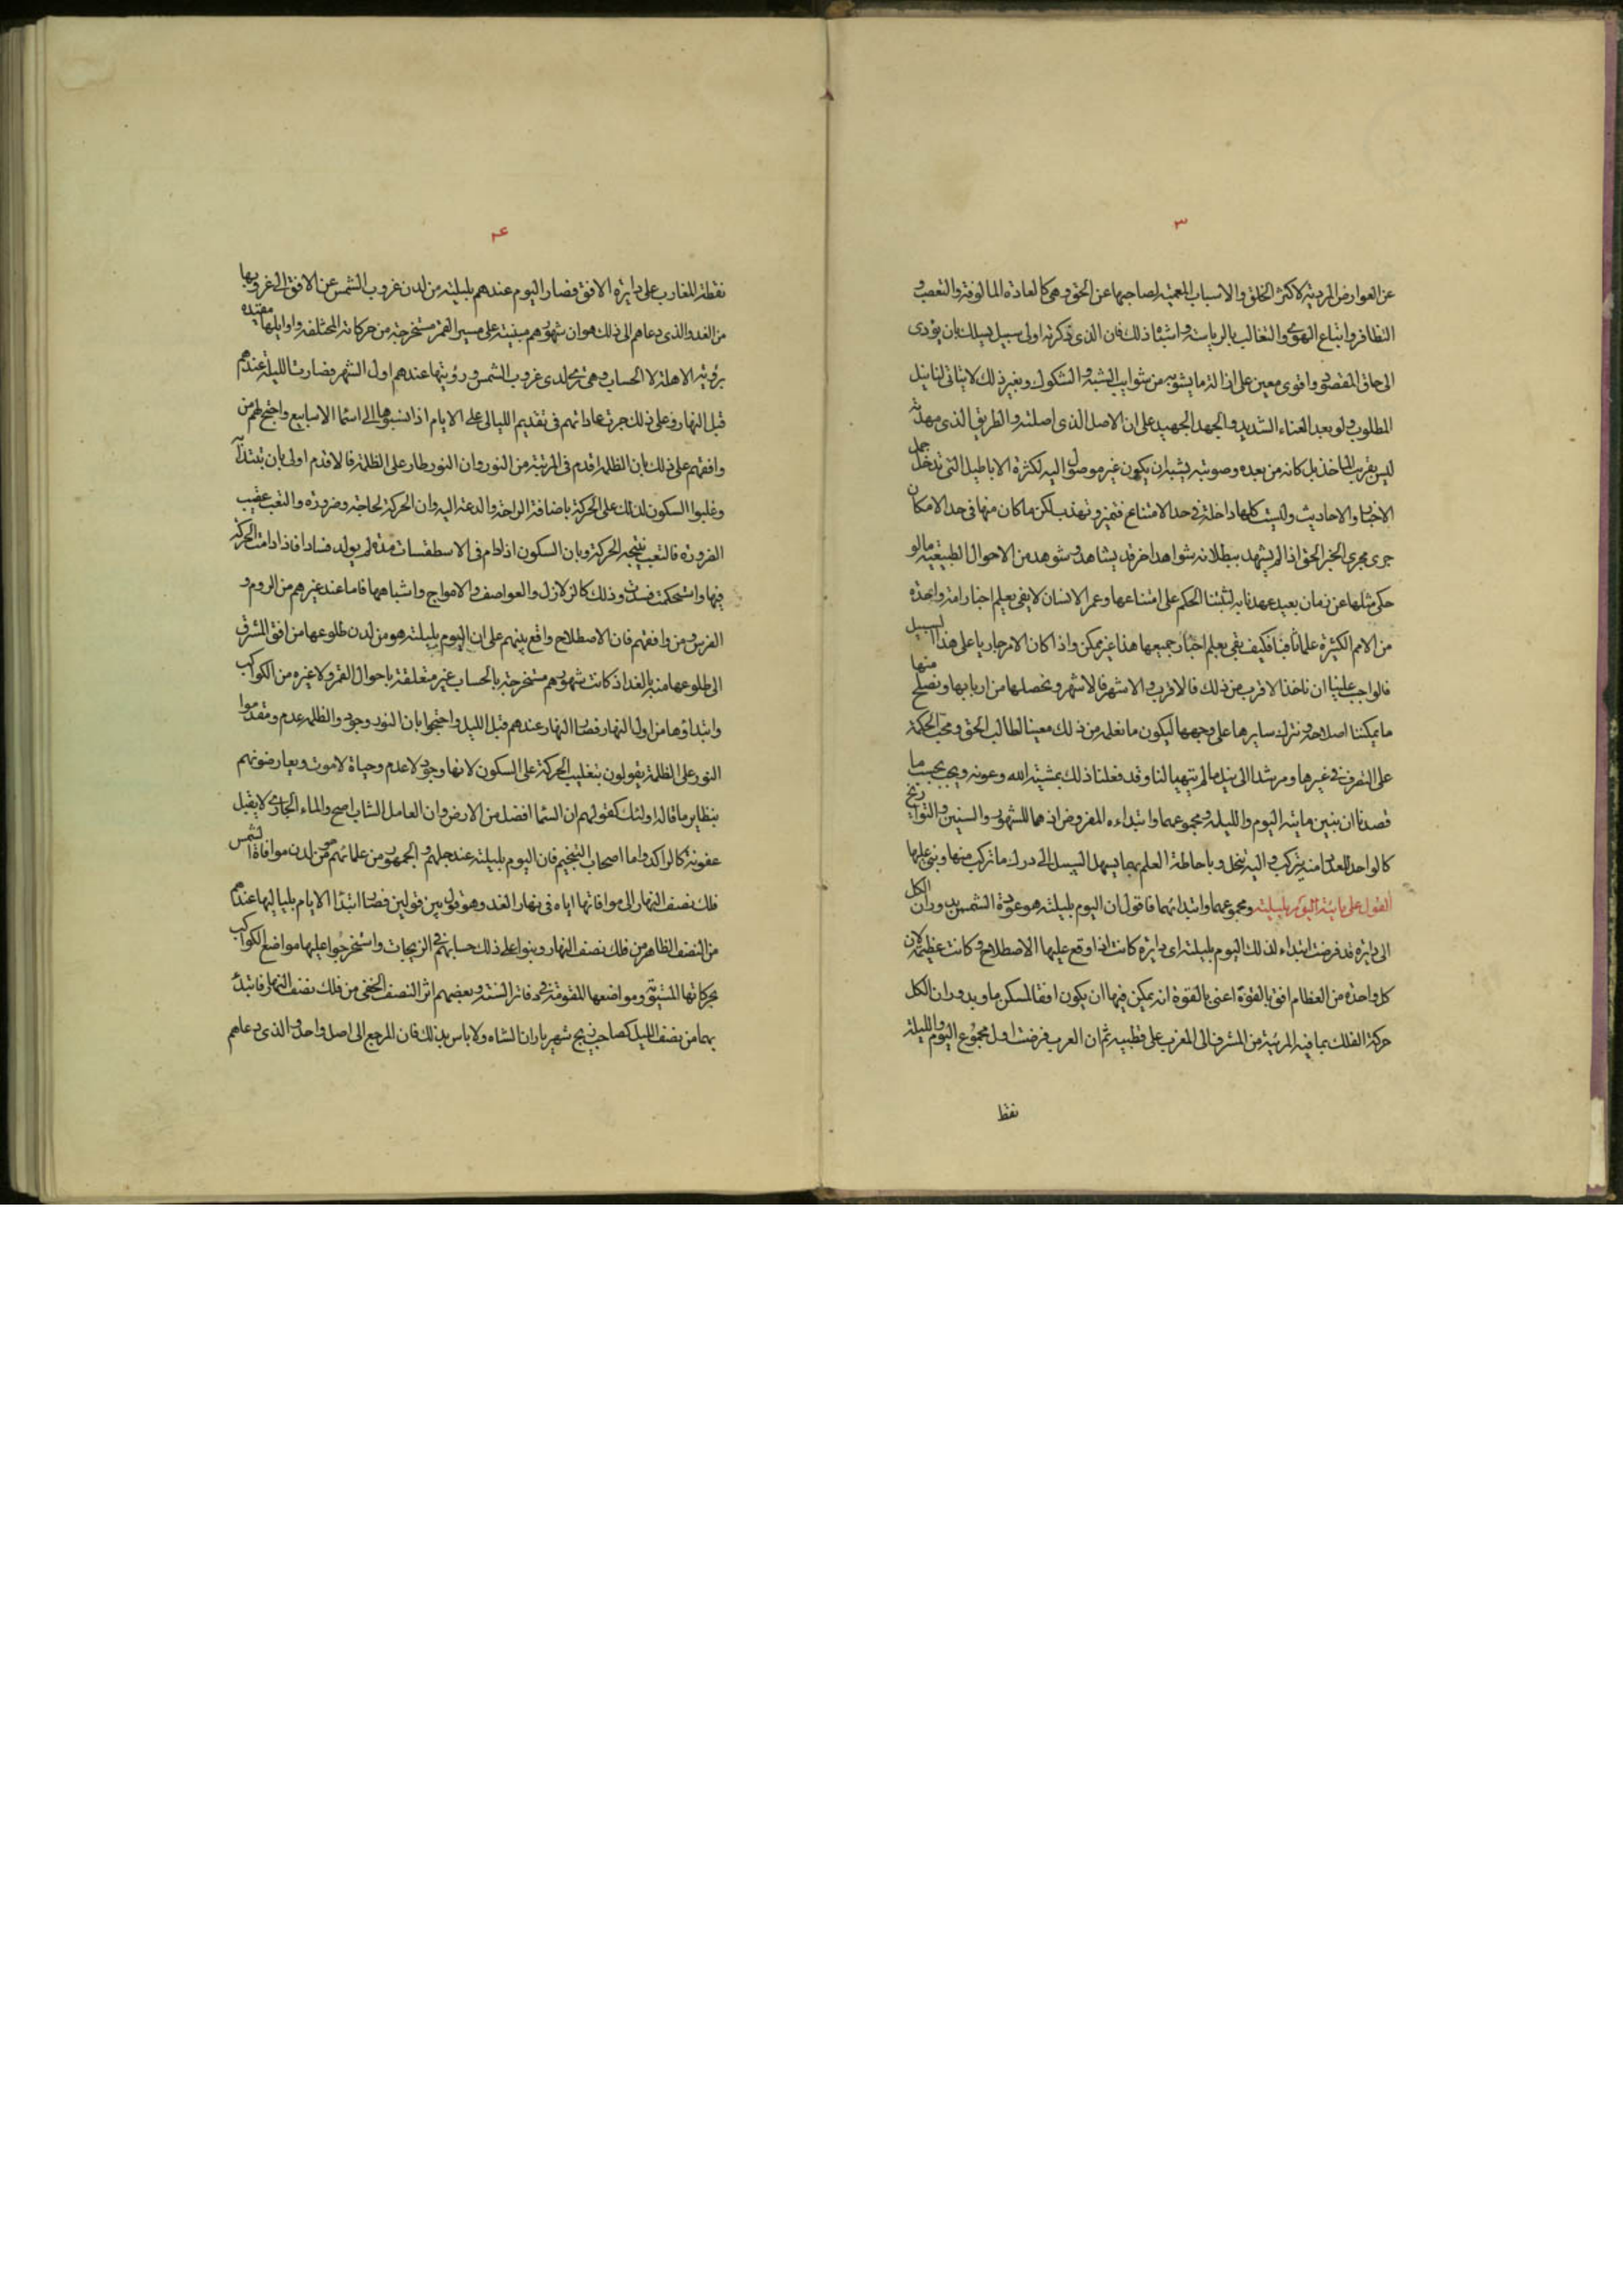 ٣
عن العوارض المردية لاكثر الخلق والاسباب المعمية لصاحبها عن الحق وهي كالعادة المالوفة والتعصب و
التظافر واتباع الهوى والتغالب بالرياسة واشباه ذلك فان الذي ذكرته اولى سبيل يسلك بان يؤدي
الى حاق المقصود واقوى معين على ازالة ما يشوبه من شوايب الشبه والشكوك وبغير ذلك لا يتاتى لنا نيل
المطلوب ولو بعد العناء الشديد والجهد الجهيد على ان الاصل الذي اصلته والطريق الذي مهدته
ليس بقريب الماخذ بل كانه من بعده وصعوبته يشبه ان يكون غير موصول اليه لكثرة الاباطيل التي تدخل جمل
الاخبار والاحاديث وليست كلها داخلة في حد الامتناع فتميز وتهذب لكن ما كان منها في حد الامكان
جرى مجرى الخبر الحق اذا لم يشهد ببطلانه شواهد اخر قد يشاهد وشوهد من الاحوال الطبيعية ما لو
حكى مثلها عن زمان بعيد عهدنا به لثبتنا الحكم على امتناعها وعمر الانسان لا يفي بعلم اخبار امة واحدة
من الامم الكثيرة علما ثاقبا فكيف يفي بعلم اخبار جميعها هذا غير ممكن واذا كان الامر جاريا على هذا السبيل
فالواجب علينا ان ناخذ الاقرب من ذلك فالاقرب والاشهر فالاشهر ونحصلها من اربابها ونصلح منها
ما يمكننا اصلاحه ونترك سايرها على وجهها ليكون ما نعمله من ذلك معينا لطالب الحق ومحب الحكمة
على التصرف في غيرها ومرشدا الى نيل ما لم يتهيا لنا وقد فعلنا ذلك بمشية الله وعونه ويجب بحسب ما
قصدنا ان نبين ماية اليوم والليلة ومجموعهما وابتداءه المفروض اذ هما للشهور والسنين والتواريخ
كالواحد للعدد منه يتركب واليه ينحل وباحاطة العلم بهما يسهل السبيل الى درك ما تركب منها وبني عليها
القول على مائية اليوم بليلته ومجموعهما وابتدائهما فاقول ان اليوم بليلته هو عودة الشمس بدوران الكل
الى دايرة قد فرضت ابتداء لذلك اليوم بليلته اي دايرة كانت اذا وقع عليها الاصطلاح وكانت عظيمة لان
كل واحدة من العظام افق بالقوة اعني بالقوة انه يمكن فيها ان يكون افقا لمسكن ما وبدوران الكل
حركة الفلك بما فيه المرئية من المشرق الى المغرب على قطبيه ثم ان العرب فرضت اول مجموع اليوم والليلة
نقط
٤
نقطة المغارب على دايرة الافق فصار اليوم عندهم بليلته من لدن غروب الشمس عن الافق الى غروبها
من الغد والذي دعاهم الى ذلك هو ان شهورهم مبنية على مسير القمر مستخرجة من حركاته المختلفة واوايلها مقيدة
برؤية الاهلة لا الحساب وهي ترى لدى غروب الشمس ورؤيتها عندهم اول الشهر فصارت الليلة عندهم
قبل النهار وعلى ذلك جرت عاداتهم في تقديم الليالي على الايام اذا نسبوها الى اسماء الاسابيع واحتج لهم من
وافقهم على ذلك بان الظلمة اقدم في المرتبة من النور وان النور طار على الظلمة فالاقدم اولى بان يبتدا به
وغلبوا السكون لذلك على الحركة باضافة الراحة والدعة اليه وان الحركة لحاجة وضرورة والتعب عقيب
الضرورة فالتعب نتيجة الحركة وبان السكون اذا دام في الاسطقسات مدة لم يولد فسادا فاذا دامت الحركة
فيها واستحكمت فسدت وذلك كالزلازل والعواصف والامواج واشباهها فاما عند غيرهم من الروم و
الفرس ومن وافقهم فان الاصطلاح واقع بينهم على ان اليوم بليلته هو من لدن طلوعها من افق المشرق
الى طلوعها منه بالغد اذ كانت شهورهم مستخرجة بالحساب غير متعلقة باحوال القمر ولا غيره من الكواكب
وابتداؤها من اول النهار فصار النهار عندهم قبل الليل واحتجوا بان النور وجود والظلمة عدم ومقدموا
النور على الظلمة يقولون بتغليب الحركة على السكون لانها وجود لا عدم وحياة لا موت ويعارضونهم
بنظاير ما قاله اولئك كقولهم ان السماء افضل من الارض وان العامل الشاب اصح والماء الجاري لا يقبل
عفونة كالراكد واما اصحاب التنجيم فان اليوم بليلته عند جلهم والجمهور من علمائهم هو من لدن موافاة الشمس
فلك نصف النهار الى موافاتها اياه في نهار الغد وهو قول بين قولين فصار ابتداء الايام بلياليها عندهم
من النصف الظاهر من فلك نصف النهار وبنوا على ذلك حسابهم في الزيجات واستخرجوا عليها مواضع الكواكب
بحركاتها المستوية ومواضعها المقومة في دفاتر السنة وبعضهم اثر النصف الخفي من فلك نصف النهار فابتدا
بهما من نصف الليل كصاحب زيج شهرياران الشاه ولا باس بذلك فان المرجع الى اصل واحد والذي دعاهم